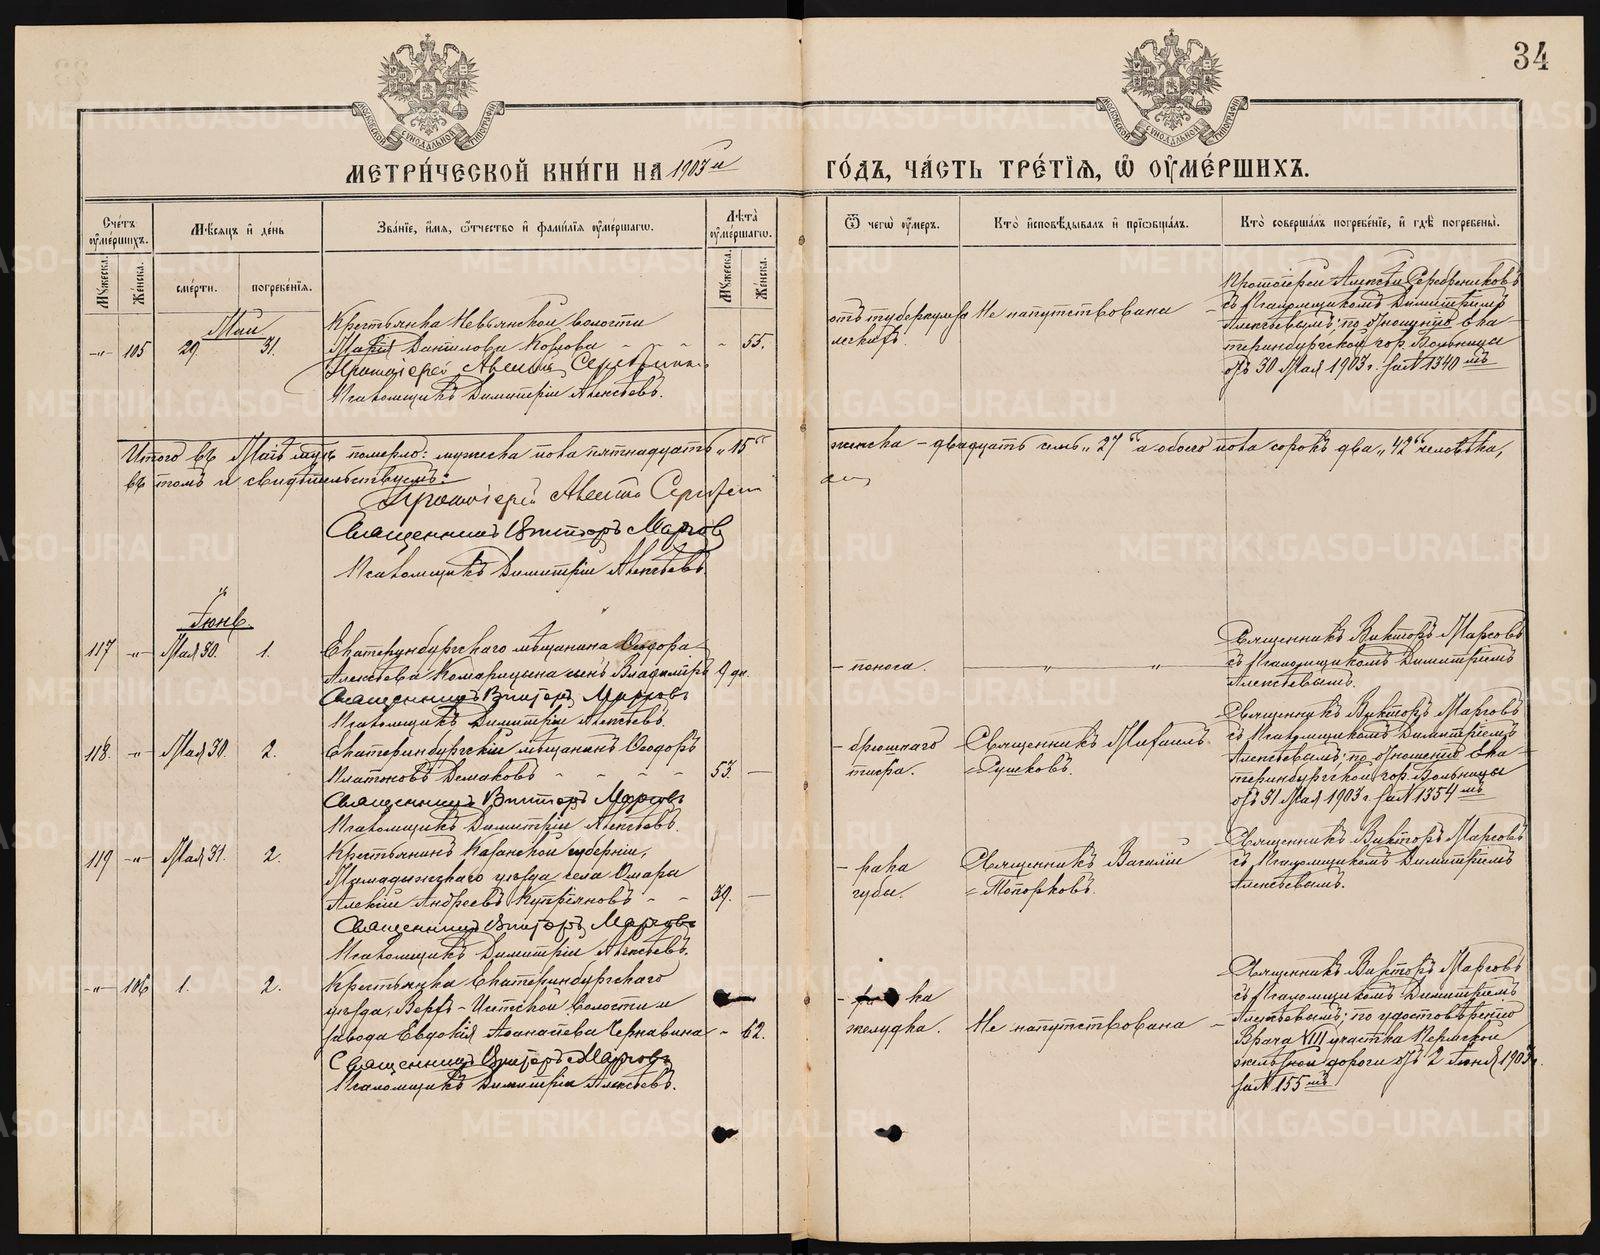 34
МЕТРИ́ЧЕСКОЙ КНИ́ГИ НА 1903 й ГО́ДЪ, ЧА́СТЬ ТРЕ́ТІѦ, Ѽ ОУМЕ́РШИХЪ.
Сче́тъ оуме́ршихъ.
Мѣсяцъ и день
Зва́ніе, и́мя, ѻ́тчество и фами́лія оуме́ршагѡ.
Лѣта̀ оуме́ршагѡ.
Ѿ чегѡ̀ оу́меръ.
Кто̀ исповѣ́дывалъ и пріѡбща́лъ.
Кто̀ соверша́лъ погребе́ніе, и гдѣ̀ погребены̀.
Мꙋ́жеска.
Же́нска.
сме́рти.
погребе́нія.
Мꙋ́жеска.
Же́нска.
Май
-"- 105 29. 31.
Крестьянка Невьянской волости
Марія Данилова Козлова - - - - 55.
Протоіерей Алексій
Псаломщикъ Димитрій Алексѣевъ.
отъ туберкулеза
легкихъ.
Не напутствована
Протоіерей Алексій Серебрениковъ
съ Псаломщикомъ Димитріемъ
Алексѣевымъ; по отношенію Ека-
теринбургской гор. Больницы
отъ 30 Мая 1903 г. за № 1340 мъ
Итого въ Маѣ мцѣ померло: мужеска пола пятнадцать „15“ женска - двадцать семь „27“ а обоего пола сорокъ два „42“ человѣка,
въ томъ и свидѣтельствуемъ:
Протоіерей
Священникъ Викторъ Марсовъ
Псаломщикъ Димитрій Алексѣевъ.
Іюнь.
117 -"- Мая 30. 1.
Екатеринбургскаго мѣщанина Ѳеодора
Алексѣева Комарицына сынъ Владиміръ 9 дн.
Священникъ Викторъ Марсовъ
Псаломщикъ Димитрій Алексѣевъ.
- поноса.
- " - "
Священникъ Викторъ Марсовъ
съ Псаломщикомъ Димитріемъ
Алексѣевымъ.
118. -"- Мая 30. 2.
Екатеринбургскій мѣщанинъ Ѳеодоръ
Платоновъ - - - - 53. -
Священникъ Викторъ Марсовъ
Псаломщикъ Димитрій Алексѣевъ.
- брюшнаго
тифа.
Священникъ Михаилъ
Священникъ Викторъ Марсовъ
съ Псаломщикомъ Димитріемъ
Алексѣевымъ; по отношенію Ека-
теринбургской гор. Больницы
отъ 31 Мая 1903 г. за № 1354 мъ
119 -"- Мая 31. 2.
Крестьянинъ Казанской губерніи,
Мамадышскаго уѣзда села Омары
Алексій Андреевъ Купріяновъ - - 39. -
Священникъ Викторъ Марсовъ
Псаломщикъ Димитрій Алексѣевъ.
- рака
губы.
Священникъ Василій
Топорковъ.
Священникъ Викторъ Марсовъ
съ Псаломщикомъ Димитріемъ
Алексѣевымъ.
-"- 106 1. 2.
Крестьянка Екатеринбургскаго
уѣзда, Верхъ-Исетской волости и
завода Евдокія Аѳанасьева Чернавина - 62.
Священникъ Викторъ Марсовъ
Псаломщикъ Димитрій Алексѣевъ.
- рака
желудка.
Не напутствована -
Священникъ Викторъ Марсовъ
съ Псаломщикомъ Димитріемъ
Алексѣевымъ; по удостовѣренію
Врача VIII участка Пермской
желѣзной дороги отъ 2 Іюня 1903 г.
за № 155 мъ
METRIKI.GASO-URAL.RU